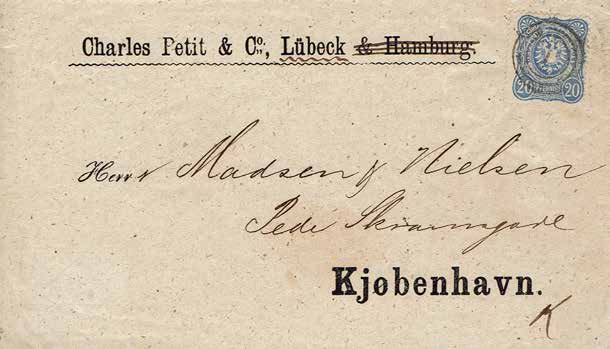 Charles Petit & Co., Lübeck & Hamburg.
20 20
Herrn Madsen & Nielsen
Pede Skramsgade
Kjøbenhavn.
K